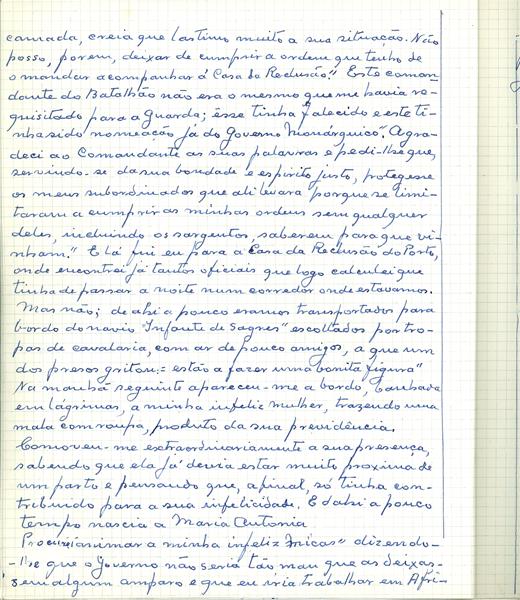 camada, creia que lastimo muito a sua situação. Não
posso, porem, deixar de cumprir a ordem que tenho de
o mandar acompanhar á Casa da Reclusão." Este coman-
dante do Batalhão não era o mesmo que me havia re-
quisitado para a Guarda; êsse tinha falecido e este ti-
nha sido nomeação já do Governo Monárquico". Agra-
deci ao Comandante as suas palavras e pedi-lhe que,
servindo-se da sua bondade e espirito justo, protegesse
os meus subordinados que ali levara porque se limi-
taram a cumprir as minhas ordens sem qualquer
deles, incluindo os sargentos, saberem para que vi-
nham." E lá fui eu para a Casa da Reclusão do Porto,
onde encontrei já tantos oficiais que logo calculei que
tinha de passar a noite num corredor onde estavamos.
Mas não; de ahi a pouco eramos transportados para
bordo do navio "Infante de Sagres" escoltados por tro-
pas de cavalaria, com ar de pouco amigos, a que um
dos presos gritou:= estão a fazer uma bonita figura"
Na manhã seguinte apareceu-me a bordo, banhada
em lágrimas, a minha infeliz mulher, trazendo uma
mala com roupa, produto da sua previdência.
Comoveu-me extraordinariamente a sua presença,
sabendo que ela já devia estar muito proxima de
um parto e pensando que, afinal, só tinha con-
tribuido para a sua infelicidade. E d'ahi a pouco
tempo nascia a Maria Antonia
Procurei animar a minha infeliz dizendo-
-lhe que o Governo não seria tão mau que as deixas-
sem algum amparo e que eu iria trabalhar em Afri-